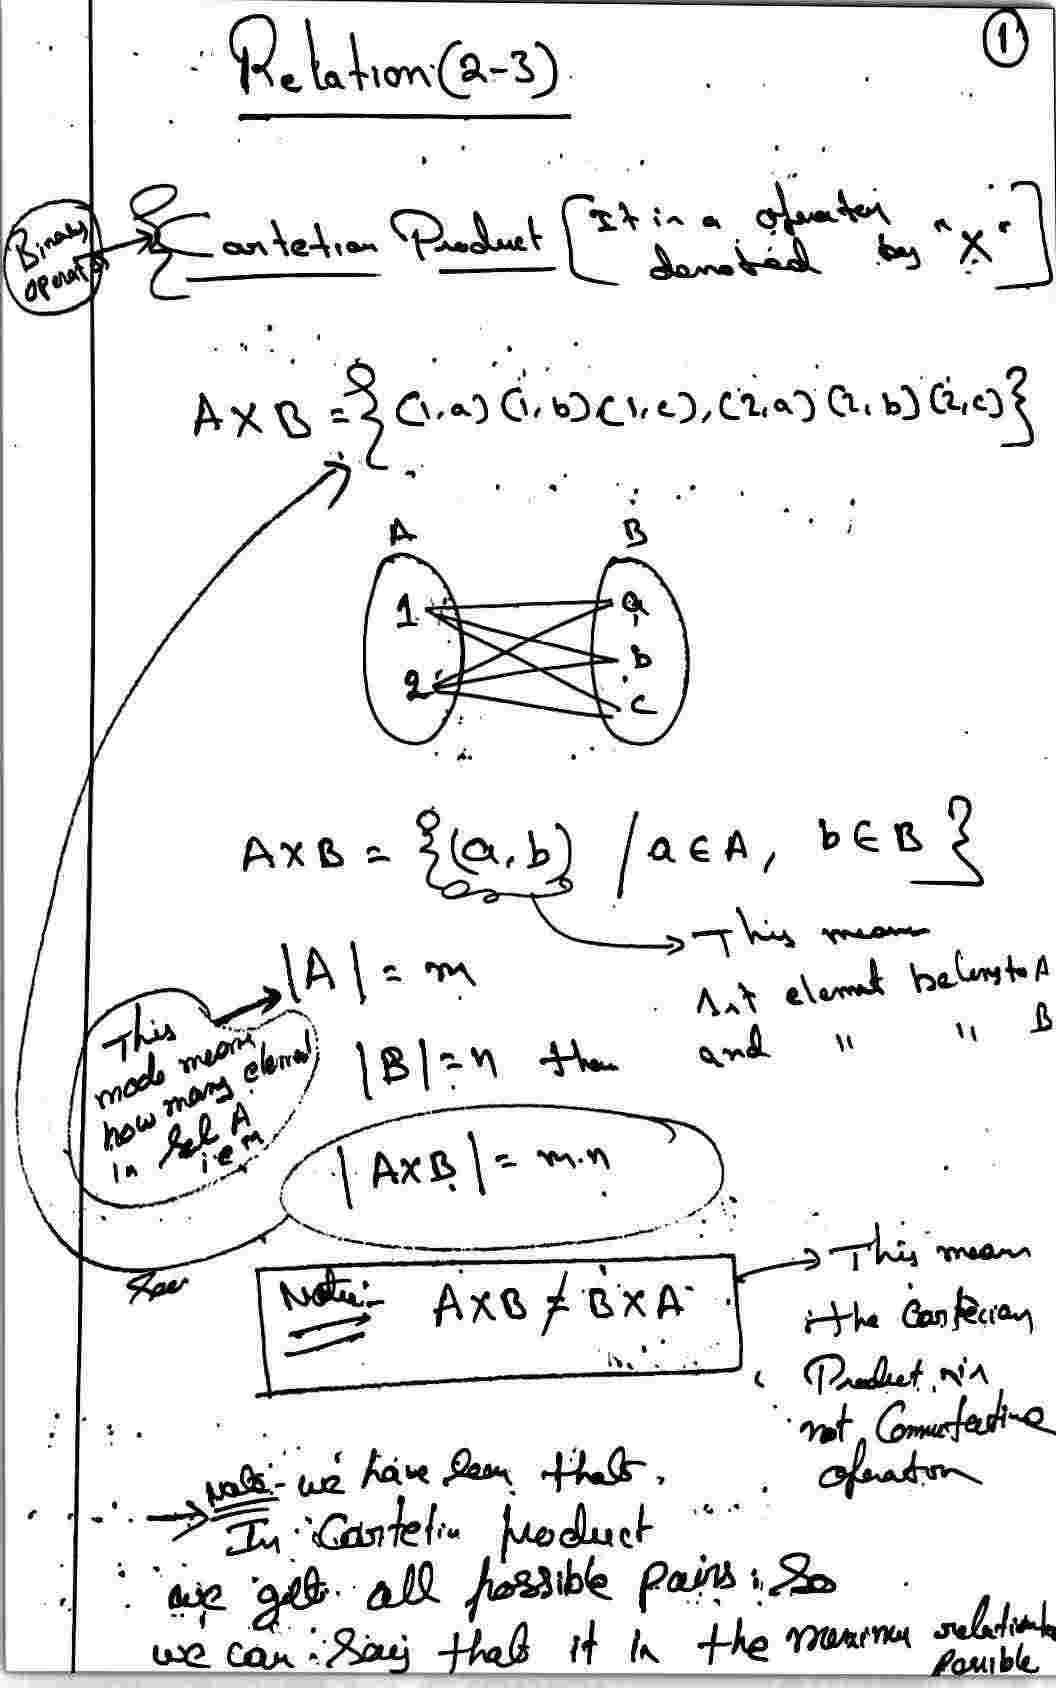 1
Relation (2-3)
Binary
operator
Cartetian Product [It is a operator
denoted by "X"]
A X B = {(1,a) (1,b) (1,c), (2,a) (2,b) (2,c)}
A B
1 a
2 b
c
A X B = {(a,b) / a ∈ A, b ∈ B}
This means
1st element belongs to A
and " " B
|A| = m
|B| = n then
This
mode means
how many element
in Set A
i.e m
|A X B| = m.n
See
Note:- A X B ≠ B X A
This means
the Cartecian
Product is
not Commutative
operation
Note:- we have seen that,
In Cartetin product
we get all possible pairs. So
we can say that it is the maximum relation
possible